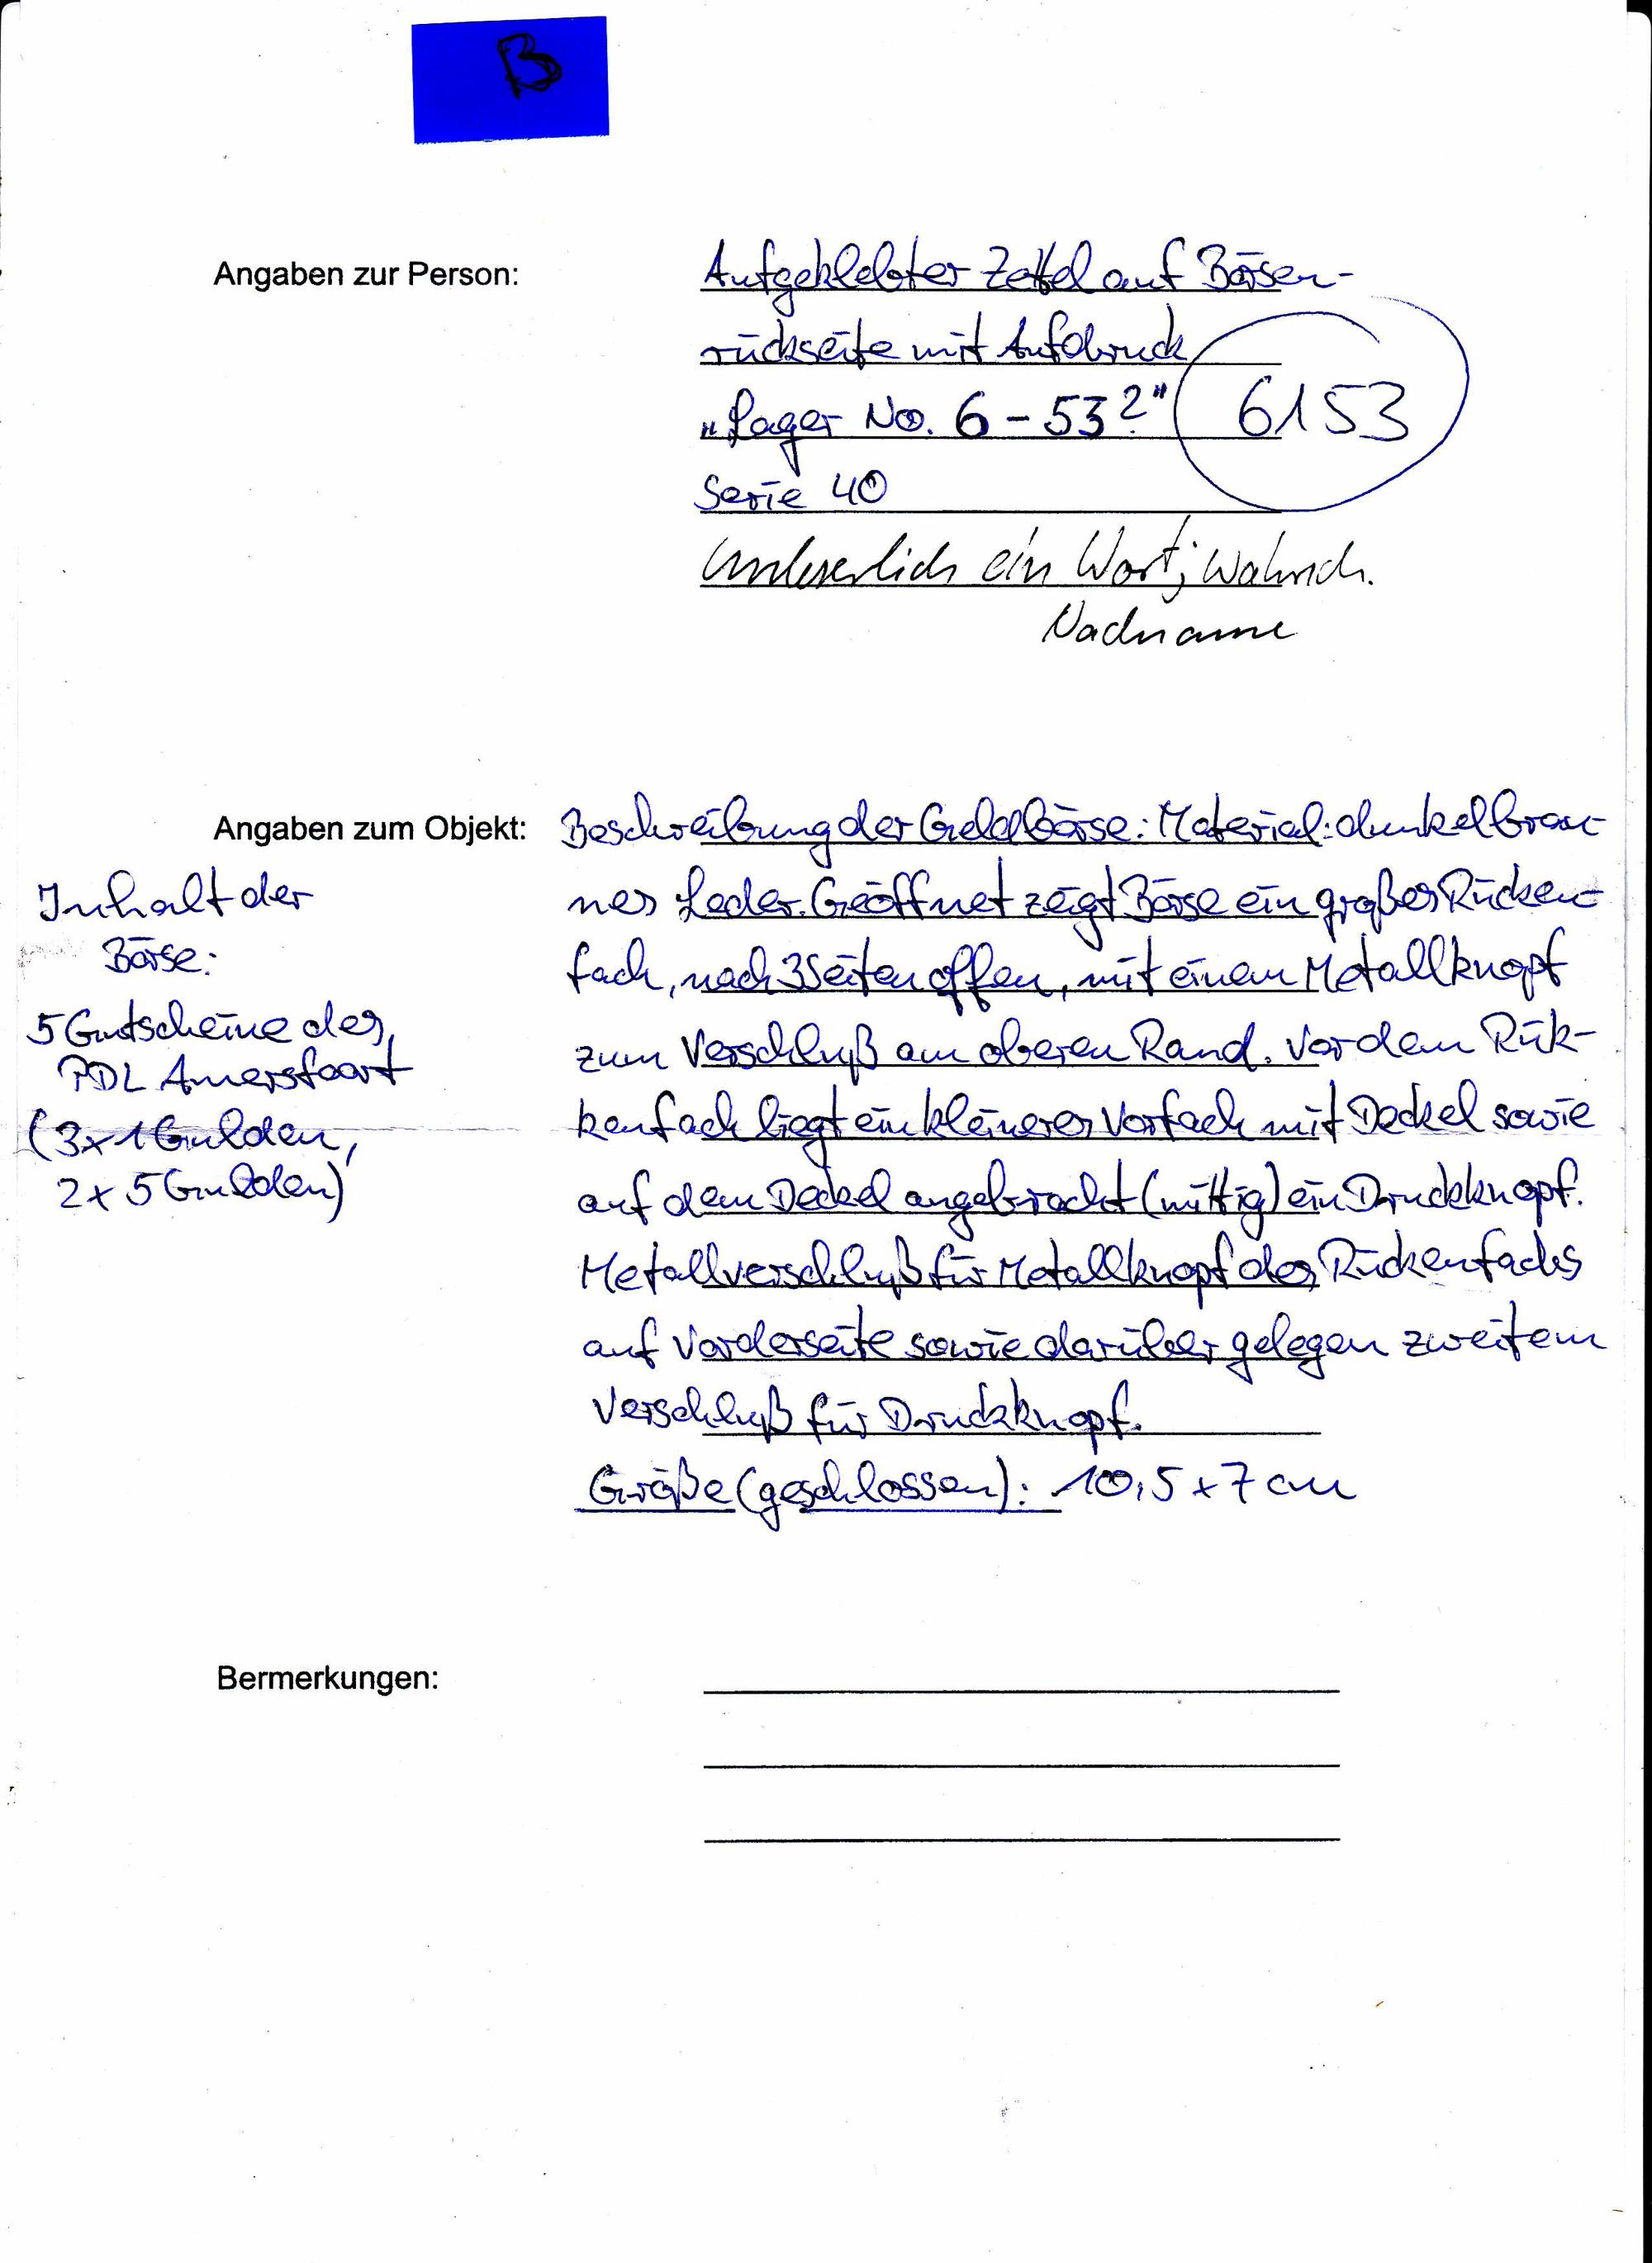 B
Angaben zur Person:
Aufgeklebter Zettel auf Börsen-
rückseite mit Aufdruck
„Lager No. 6 – 53?"
6153
Serie 40
Unleserlich ein Wort; wahrsch.
Nachname
Angaben zum Objekt:
Beschreibung der Geldbörse: Material: dunkelbrau-
nes Leder. Geöffnet zeigt Börse ein großes Rücken-
fach, nach 3 Seiten offen, mit einem Metallknopf
zum Verschluß am oberen Rand. Vor dem Rük-
kenfach liegt ein kleineres Vorfach mit Deckel sowie
auf dem Deckel angebracht (mittig) ein Druckknopf.
Metallverschluß für Metallknopf des Rückenfachs
auf Vorderseite sowie darüber gelegen zweitem
Verschluß für Druckknopf.
Größe (geschlossen): 10,5 x 7 cm
Inhalt der
Börse:
5 Gutscheine des
PDL Amersfoort
(3 x 1 Gulden,
2 x 5 Gulden)
Bermerkungen: